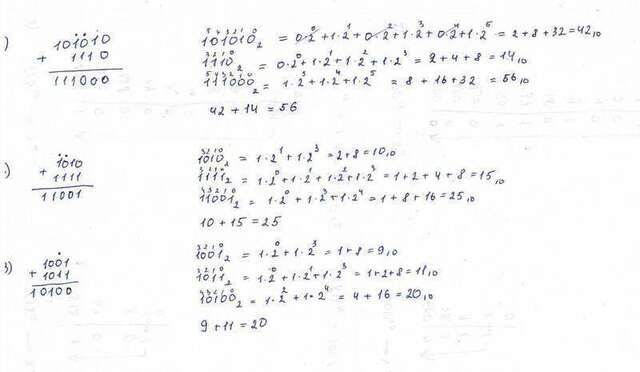 )
101010
+ 1110
111000
5 4 3 2 1 0
101010₂ = 0·2⁰+1·2¹+0·2²+1·2³+0·2⁴+1·2⁵ = 2+8+32=42₁₀
3 2 1 0
1110₂ = 0·2⁰+1·2¹+1·2²+1·2³ = 2+4+8=14₁₀
5 4 3 2 1 0
111000₂ = 1·2³+1·2⁴+1·2⁵ = 8+16+32=56₁₀
42+14=56
)
1010
+ 1111
11001
3 2 1 0
1010₂ = 1·2¹+1·2³=2+8=10₁₀
3 2 1 0
1111₂ = 1·2⁰+1·2¹+1·2²+1·2³=1+2+4+8=15₁₀
4 3 2 1 0
11001₂ = 1·2⁰+1·2³+1·2⁴=1+8+16=25₁₀
10+15=25
3)
1001
+ 1011
10100
3 2 1 0
1001₂ = 1·2⁰+1·2³ = 1+8=9₁₀
3 2 1 0
1011₂ = 1·2⁰+1·2¹+1·2³ = 1+2+8=11₁₀
4 3 2 1 0
10100₂ = 1·2²+1·2⁴ = 4+16=20₁₀
9+11=20